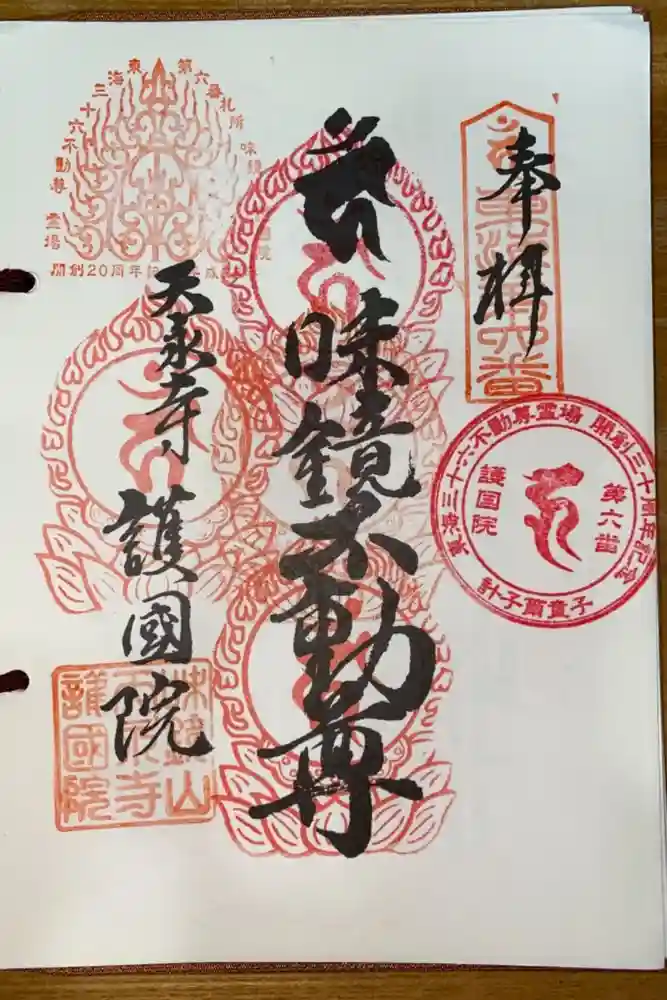 奉拝
東海第六番
味鏡不動尊
天永寺
護國院
東海三十六不動尊霊場 開創三十周年記念
第六番
護国院
計子爾童子
東海三十六不動尊霊場
第六番札所
開創20周年記
味鏡山
天永寺
護國院